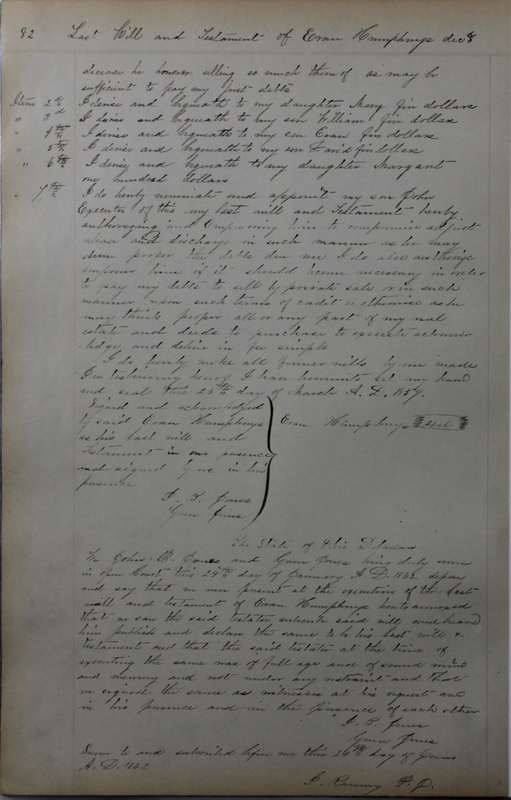 82 Last Will and Testament of Evan Humphrys decd
decease he however selling so much thereof as may be
sufficient to pay my just debts
Item 2nd I devise and bequeath to my daughter Mary five dollars
" 3d I devise and bequeath to my son William five dollars
" 4th I devise and bequeath to my son Evan five dollars
" 5th I devise and bequeath to my son David five dollars
" 6th I devise and bequeath to my daughter Margaret
one hundred dollars
" 7th I do hereby nominate and appoint my son John
Executor of this my last will and Testament hereby
authorizing and Empowering him to compromise adjust
release and discharge in such manner as he may
deem proper the debts due me I do also authorize
empower him if it should become necessary in order
to pay my debts to sell by private sale or in such
manner upon such terms of credit or otherwise as he
may think proper all or any part of my real
estate and deeds to purchase to execute acknow
ledge and deliver in fee simple
I do hereby revoke all former wills by me made
In testimony hereof I have hereunto set my hand
and seal this 28th day of March A. D. 1857.
Signed and acknowledged
by said Evan Humphrys
as his last will and
Testament in our presence
and signed by us in his
presence
Evan Humphrys seal
Jones
Jones
The State of Ohio Delaware
We John B. Jones and Jones being duly sworn
in open Court this 24th day of January A. D. 1862 depose
and say that we were present at the execution of the last
will and testament of Evan Humphrys hereto annexed
that we saw the said testator subscribe said will and heard
him publish and declare the same to be his last will &
testament and that the said testator at the time of
executing the same was of full age and of sound mind
and memory and not under any restraint and that
we signed the same as witnesses at his request and
in his presence and in the presence of each other
J. B. Jones
Jones
Sworn to and subscribed before me this 24th day of January
A. D. 1862